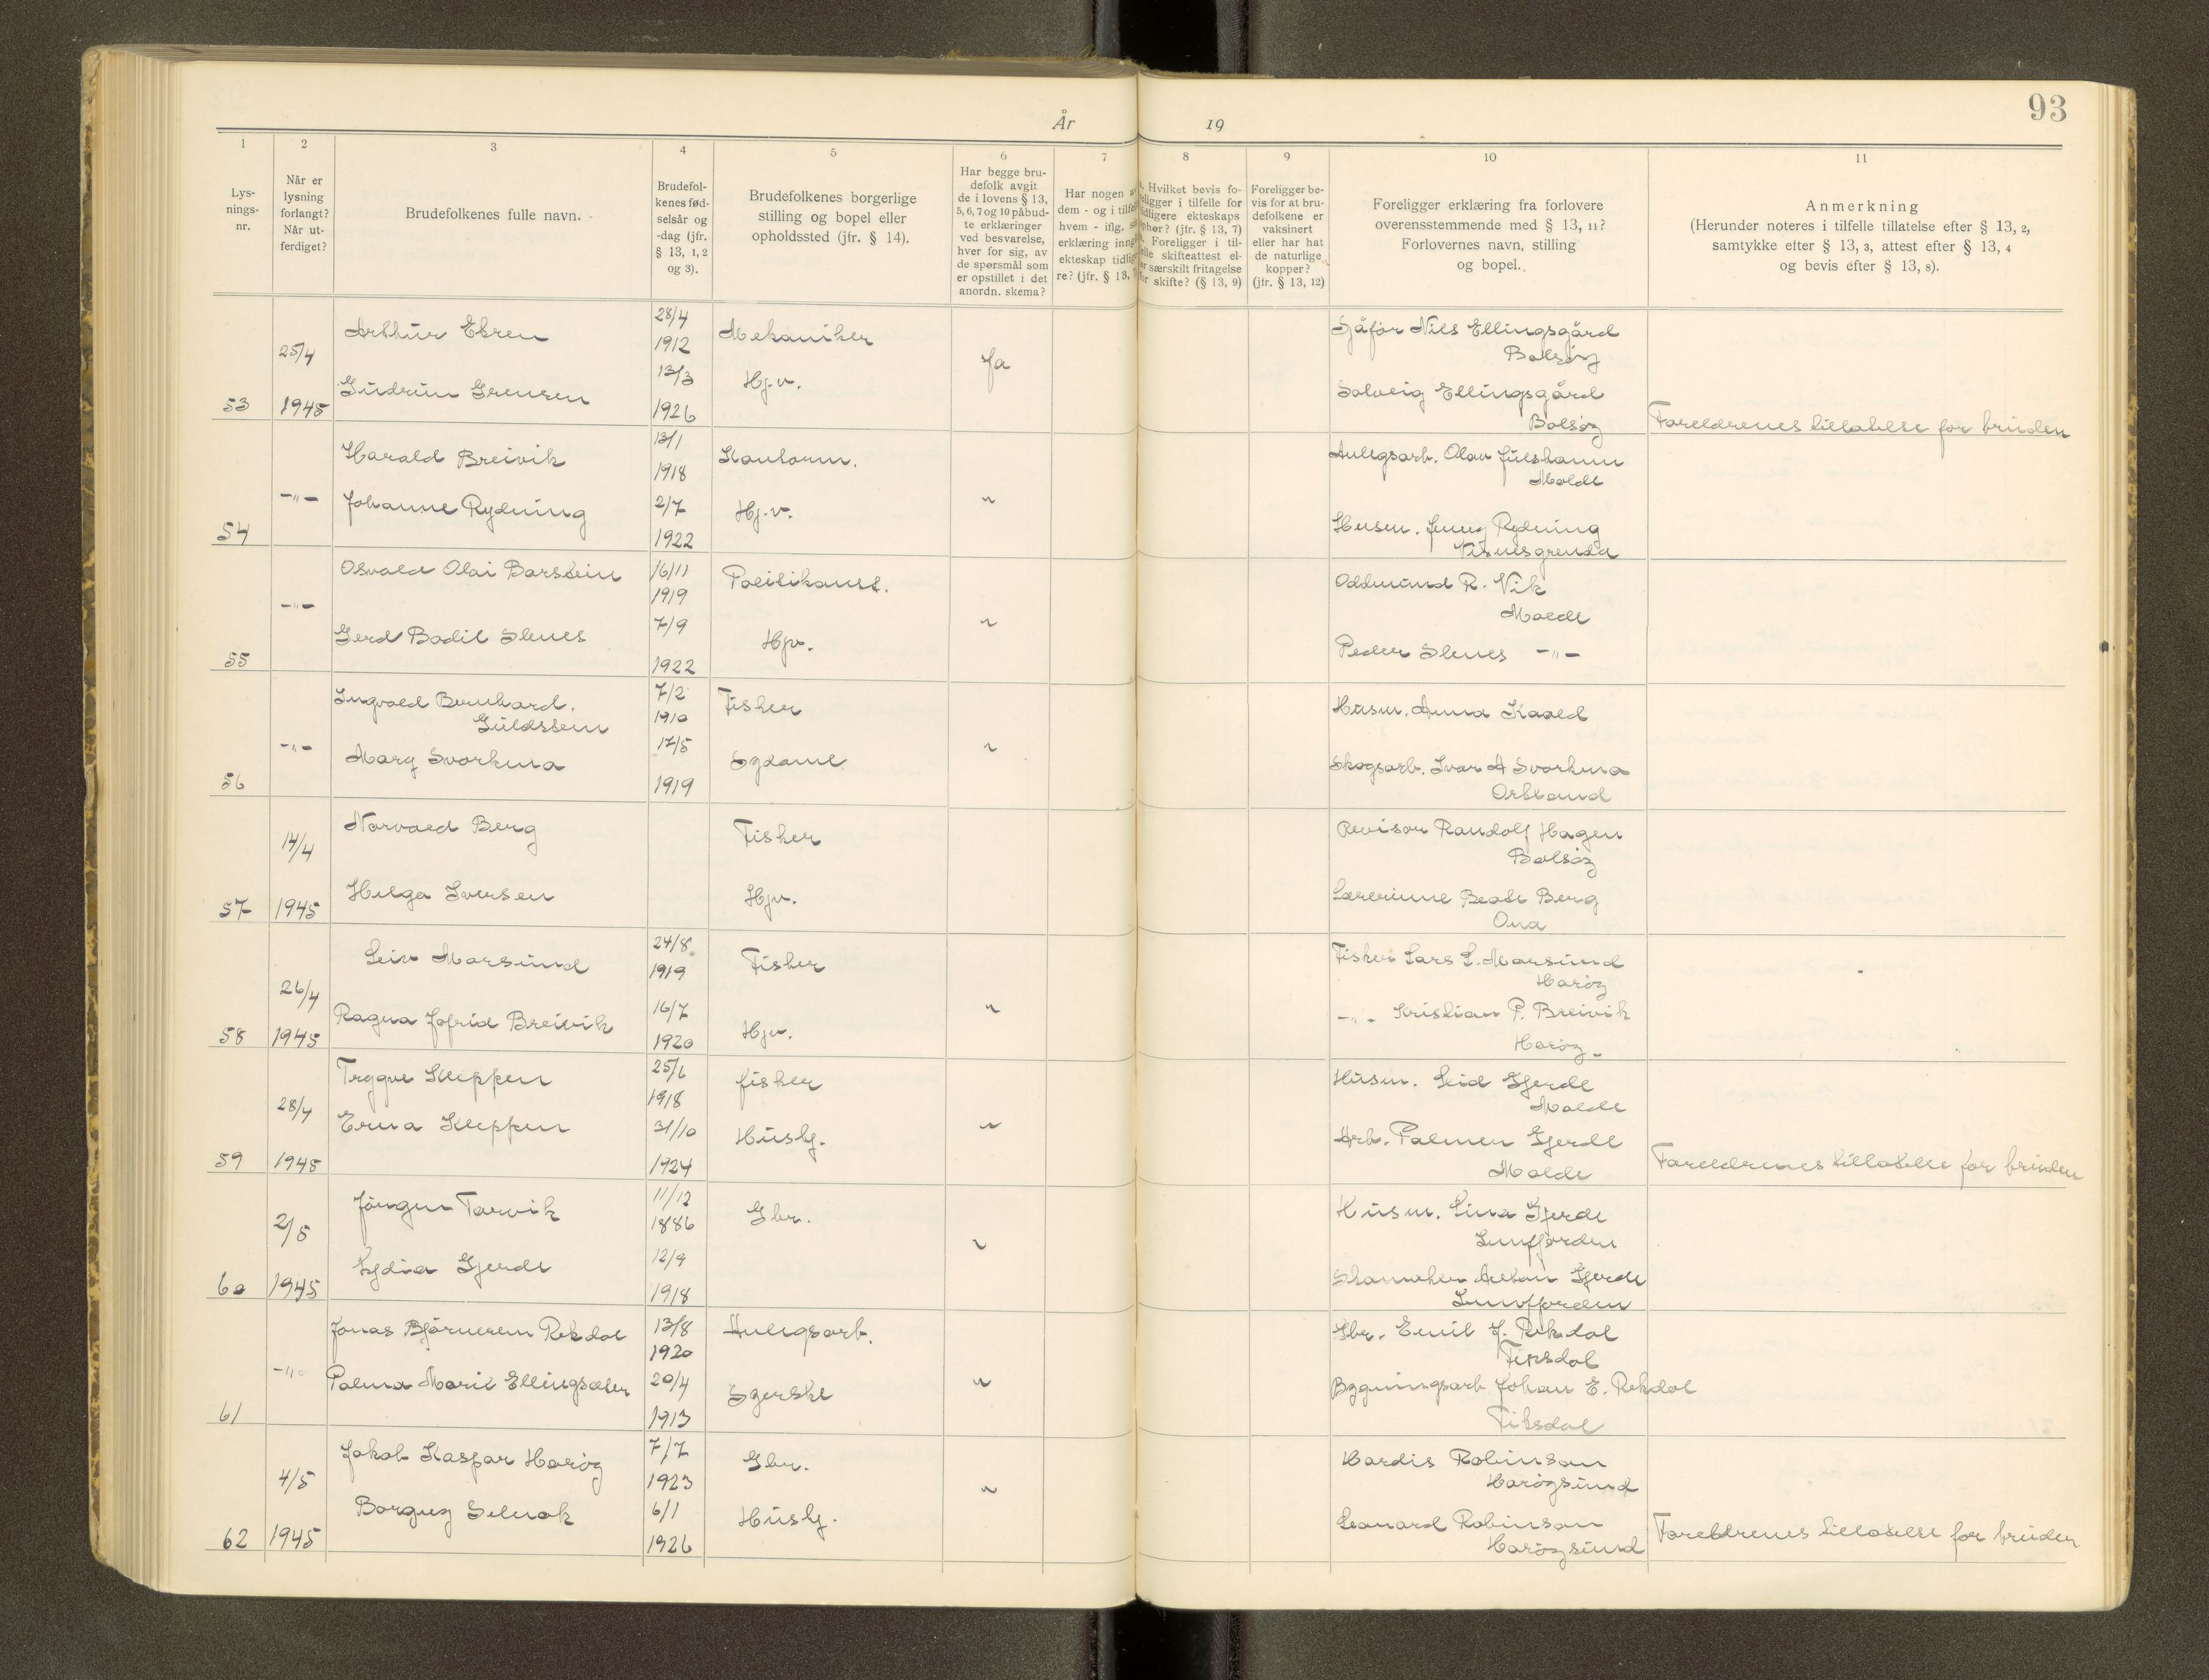 93
År 19
1
2
3
4
5
6
7
8
9
10
11
Lys-
nings-
nr.
Når er
lysning
forlangt?
Når ut-
ferdiget?
Brudefolkenes fulle navn.
Brudefol-
kenes fød-
selsår og
-dag (jfr.
§ 13, 1, 2
og 3).
Brudefolkenes borgerlige
stilling og bopel eller
opholdssted (jfr. § 14).
Har begge bru-
defolk avgit
de i lovens § 13,
5, 6, 7 og 10 påbud-
te erklæringer
ved besvarelse,
hver for sig, av
de spørsmål som
er opstillet i det
anordn. skema?
Har nogen
dem - og i
hvem - iflg.
erklæring
ekteskap
re? (jfr. § 13,
Hvilket bevis fo-
i tilfelle for
ekteskaps
(jfr. § 13, 7)
Foreligger i til-
skifteattest el-
særskilt fritagelse
skifte? (§ 13, 9)
Foreligger be-
vis for at bru-
defolkene er
vaksinert
eller har hat
de naturlige
kopper?
(jfr. § 13, 12)
Foreligger erklæring fra forlovere
overensstemmende med § 13, 11?
Forlovernes navn, stilling
og bopel.
Anmerkning
(Herunder noteres i tilfelle tillatelse efter § 13, 2,
samtykke efter § 13, 3, attest efter § 13, 4
og bevis efter § 13, 8).
53
25/4
1945
Arthur Ekren
Gudrun Grensen
28/4
1912
13/3
1926
Mekaniker
Hj.v.
Ja
Sjåfør Nils Ellingsgård
Bolsøy
Solveig Ellingsgård
Bolsøy
Foreldrenes tillatelse for bruden
54
-"-
Harald Breivik
Johanne Rydning
13/1
1918
2/7
1922
Kontorm.
Hj.v.
"
Anlegsarb. Olav Julshamn
Molde
Husm. Jenny Rydning
Visnesgrenda
55
-"-
Osvald Olai Barstein
Gerd Bodil Stenes
16/11
1919
7/9
1922
Politikonst.
Hjv.
"
Oddmund R. Vik
Molde
Peder Stenes -"-
56
-"-
Ingvald Bernhard
Guldstein
Mary Svorkmo
7/2
1910
17/5
1919
Fisker
Sydame
"
Husm. Anna Kvald
Skogsarb. Ivar A Svorkmo
Orkland
57
14/4
1945
Norvald Berg
Helga Iversen
Fisker
Hjv.
Revisor Randolf Hagen
Bolsøy
Lærerinne Beate Berg
Ona
58
26/4
1945
Leiv Morsund
Ragna Jofrid Breivik
24/8
1919
16/7
1920
Fisker
Hjv.
"
Fisker Lars L. Morsund
Harøy
-"- Kristian P. Breivik
Harøy
59
28/4
1945
Trygve Kleppen
Erna Kleppen
25/6
1918
31/10
1924
fisker
Hushj.
"
Husm. Leid Gjerde
Molde
Arb. Palmer Gjerde
Molde
Foreldrenes tillatelse for bruden
60
2/5
1945
Jørgen Torvik
Lydia Gjerde
11/12
1886
12/9
1918
Gbr.
"
Husm. Lina Gjerde
Innfjorden
Skomaker Anton Gjerde
Innfjorden
61
-"-
Jonas Bjørnerem Rekdal
Palma Marie Ellingsæter
13/8
1920
20/4
1913
Anlegsarb.
Syerske
"
Gbr. Emil J. Rekdal
Fiksdal
Bygningsarb Johan E. Rekdal
Fiksdal
62
4/5
1945
Jakob Kaspar Harøy
Borgny Selnok
7/7
1923
6/1
1926
Gbr.
Hushj.
"
Hardis Robinson
Harøysund
Leonard Robinson
Harøysund
Foreldrenes tillatelse for bruden